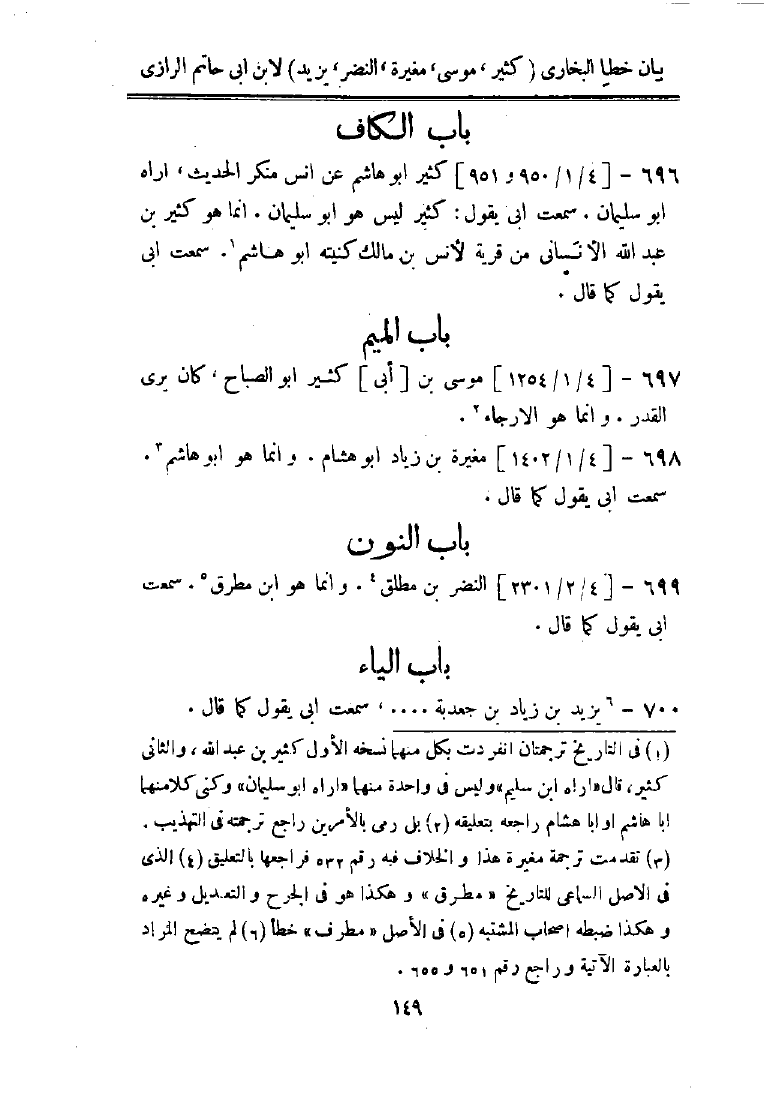 بيان خطا البخارى ( كثير ، موسى، مغيرة ،النضر، يزيد) لابن ابى حاتم الرازى
باب الكاف
٦٩٦ - [٩٥٠/١/٤ و ٩٥١] كثير ابو هاشم عن انس منكر الحديث ، اراه
ابو سليمان . سمعت ابى يقول: كثير ليس هو ابو سليمان . انما هو كثير بن
عبد الله الأنسانى من قرية لأنس بن مالك كنيته ابو هاشم ١. سمعت ابى
يقول كما قال .
باب الميم
٦٩٧ - [ ١٢٥٤/١/٤ ] موسى بن [ أبى ] كثير ابو الصباح ، كان يرى
القدر . و انما هو الارجاء ٢ .
٦٩٨ - [ ١٤٠٢/١/٤ ] مغيرة بن زياد ابو هشام . و انما هو ابو هاشم ٣ .
سمعت ابى يقول كما قال .
باب النون
٦٩٩ - [ ٢٣٠١/٢/٤ ] النضر بن مطلق ٤ . و انما هو ابن مطرق ٥ . سمعت
ابى يقول كما قال .
باب الياء
٧٠٠ - ٦ يزيد بن زياد بن جعدبة .... ، سمعت ابى يقول كما قال .
(١) فى التاريخ ترجمتان انفردت بكل منهما نسخه الأول كثير بن عبد الله ، والثانى
كثير، قال «اراه ابن سليم» وليس فى واحدة منهما «اراه ابو سليمان» وكنى كلا منهما
ابا هاشم او ابا هشام راجعه بتعليقه (٢) بل رمى بالأمرين راجع ترجمته فى التهذيب .
(٣) تقدمت ترجمة مغيرة هذا و الخلاف فيه رقم ٥٣٢ فراجعها بالتعليق (٤) الذى
فى الاصل الساعى للتاريخ « مطرق » و هكذا هو فى الجرح و التعديل و غيره
و هكذا ضبطه اصحاب المشتبه (٥) فى الأصل « مطرف » خطأ (٦) لم يتضح المراد
بالعبارة الآتية و راجع رقم ٦٥١ و ٦٥٥ .
١٤٩